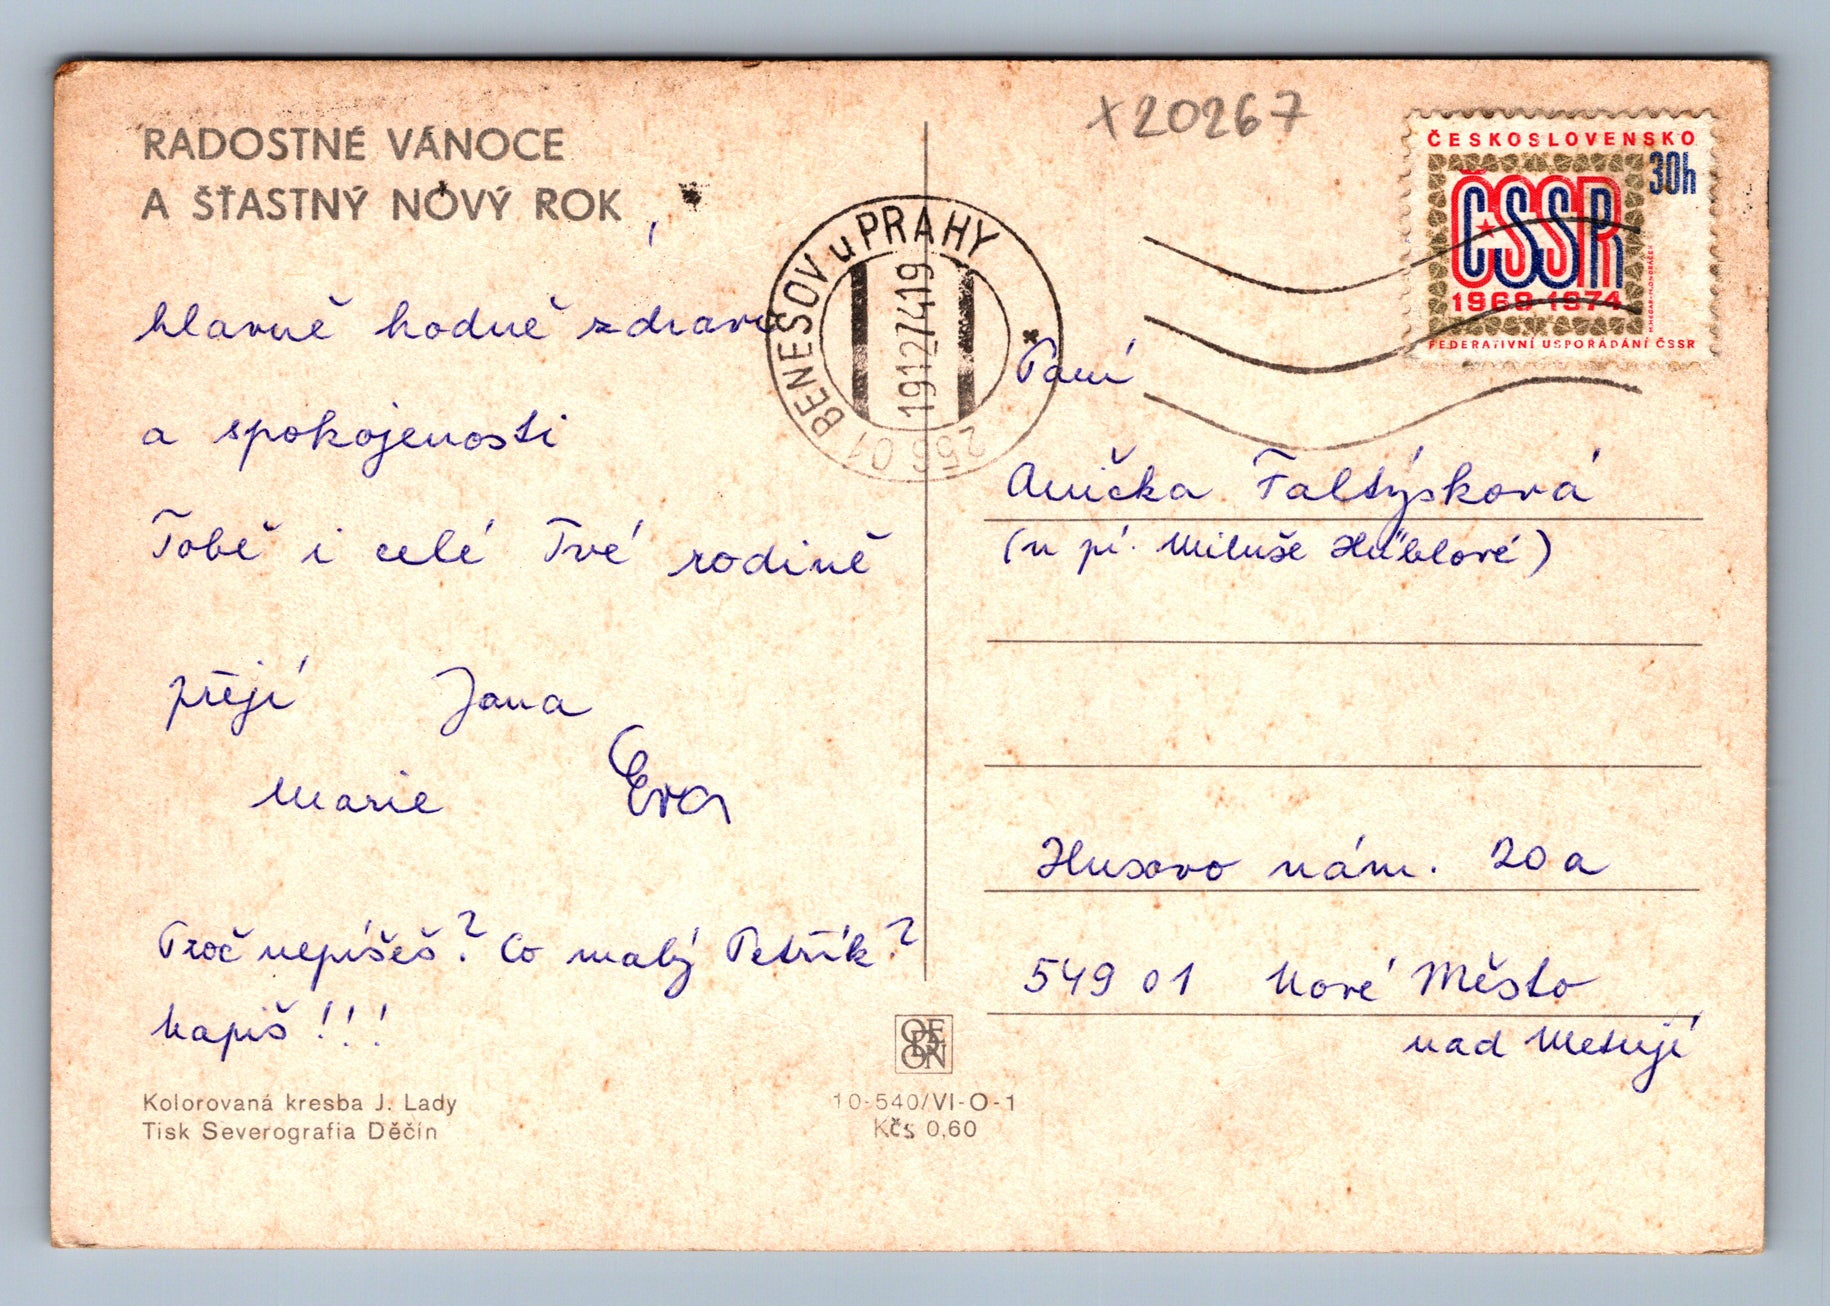 RADOSTNÉ VÁNOCE
A ŠŤASTNÝ NOVÝ ROK,
hlavně hodně zdraví
a spokojenosti
Tobě i celé Tvé rodině
přejí Jana
Marie Eva
Proč nepíšeš? Co malý Petřík?
Napiš!!!
Kolorovaná kresba J. Lady
Tisk Severografia Děčín
ODEON
10-540/VI-O-1
Kčs 0,60
x20267
ČESKOSLOVENSKO
30h
ČSSR
1969-1974
FEDERATIVNÍ USPOŘÁDÁNÍ ČSSR
256 01 BENEŠOV u PRAHY
19.12.74.19
Paní
Anička Faltýsková
(u pí. Miluše Hüblové)
Husovo nám. 20a
549 01 Nové Město
nad Metují